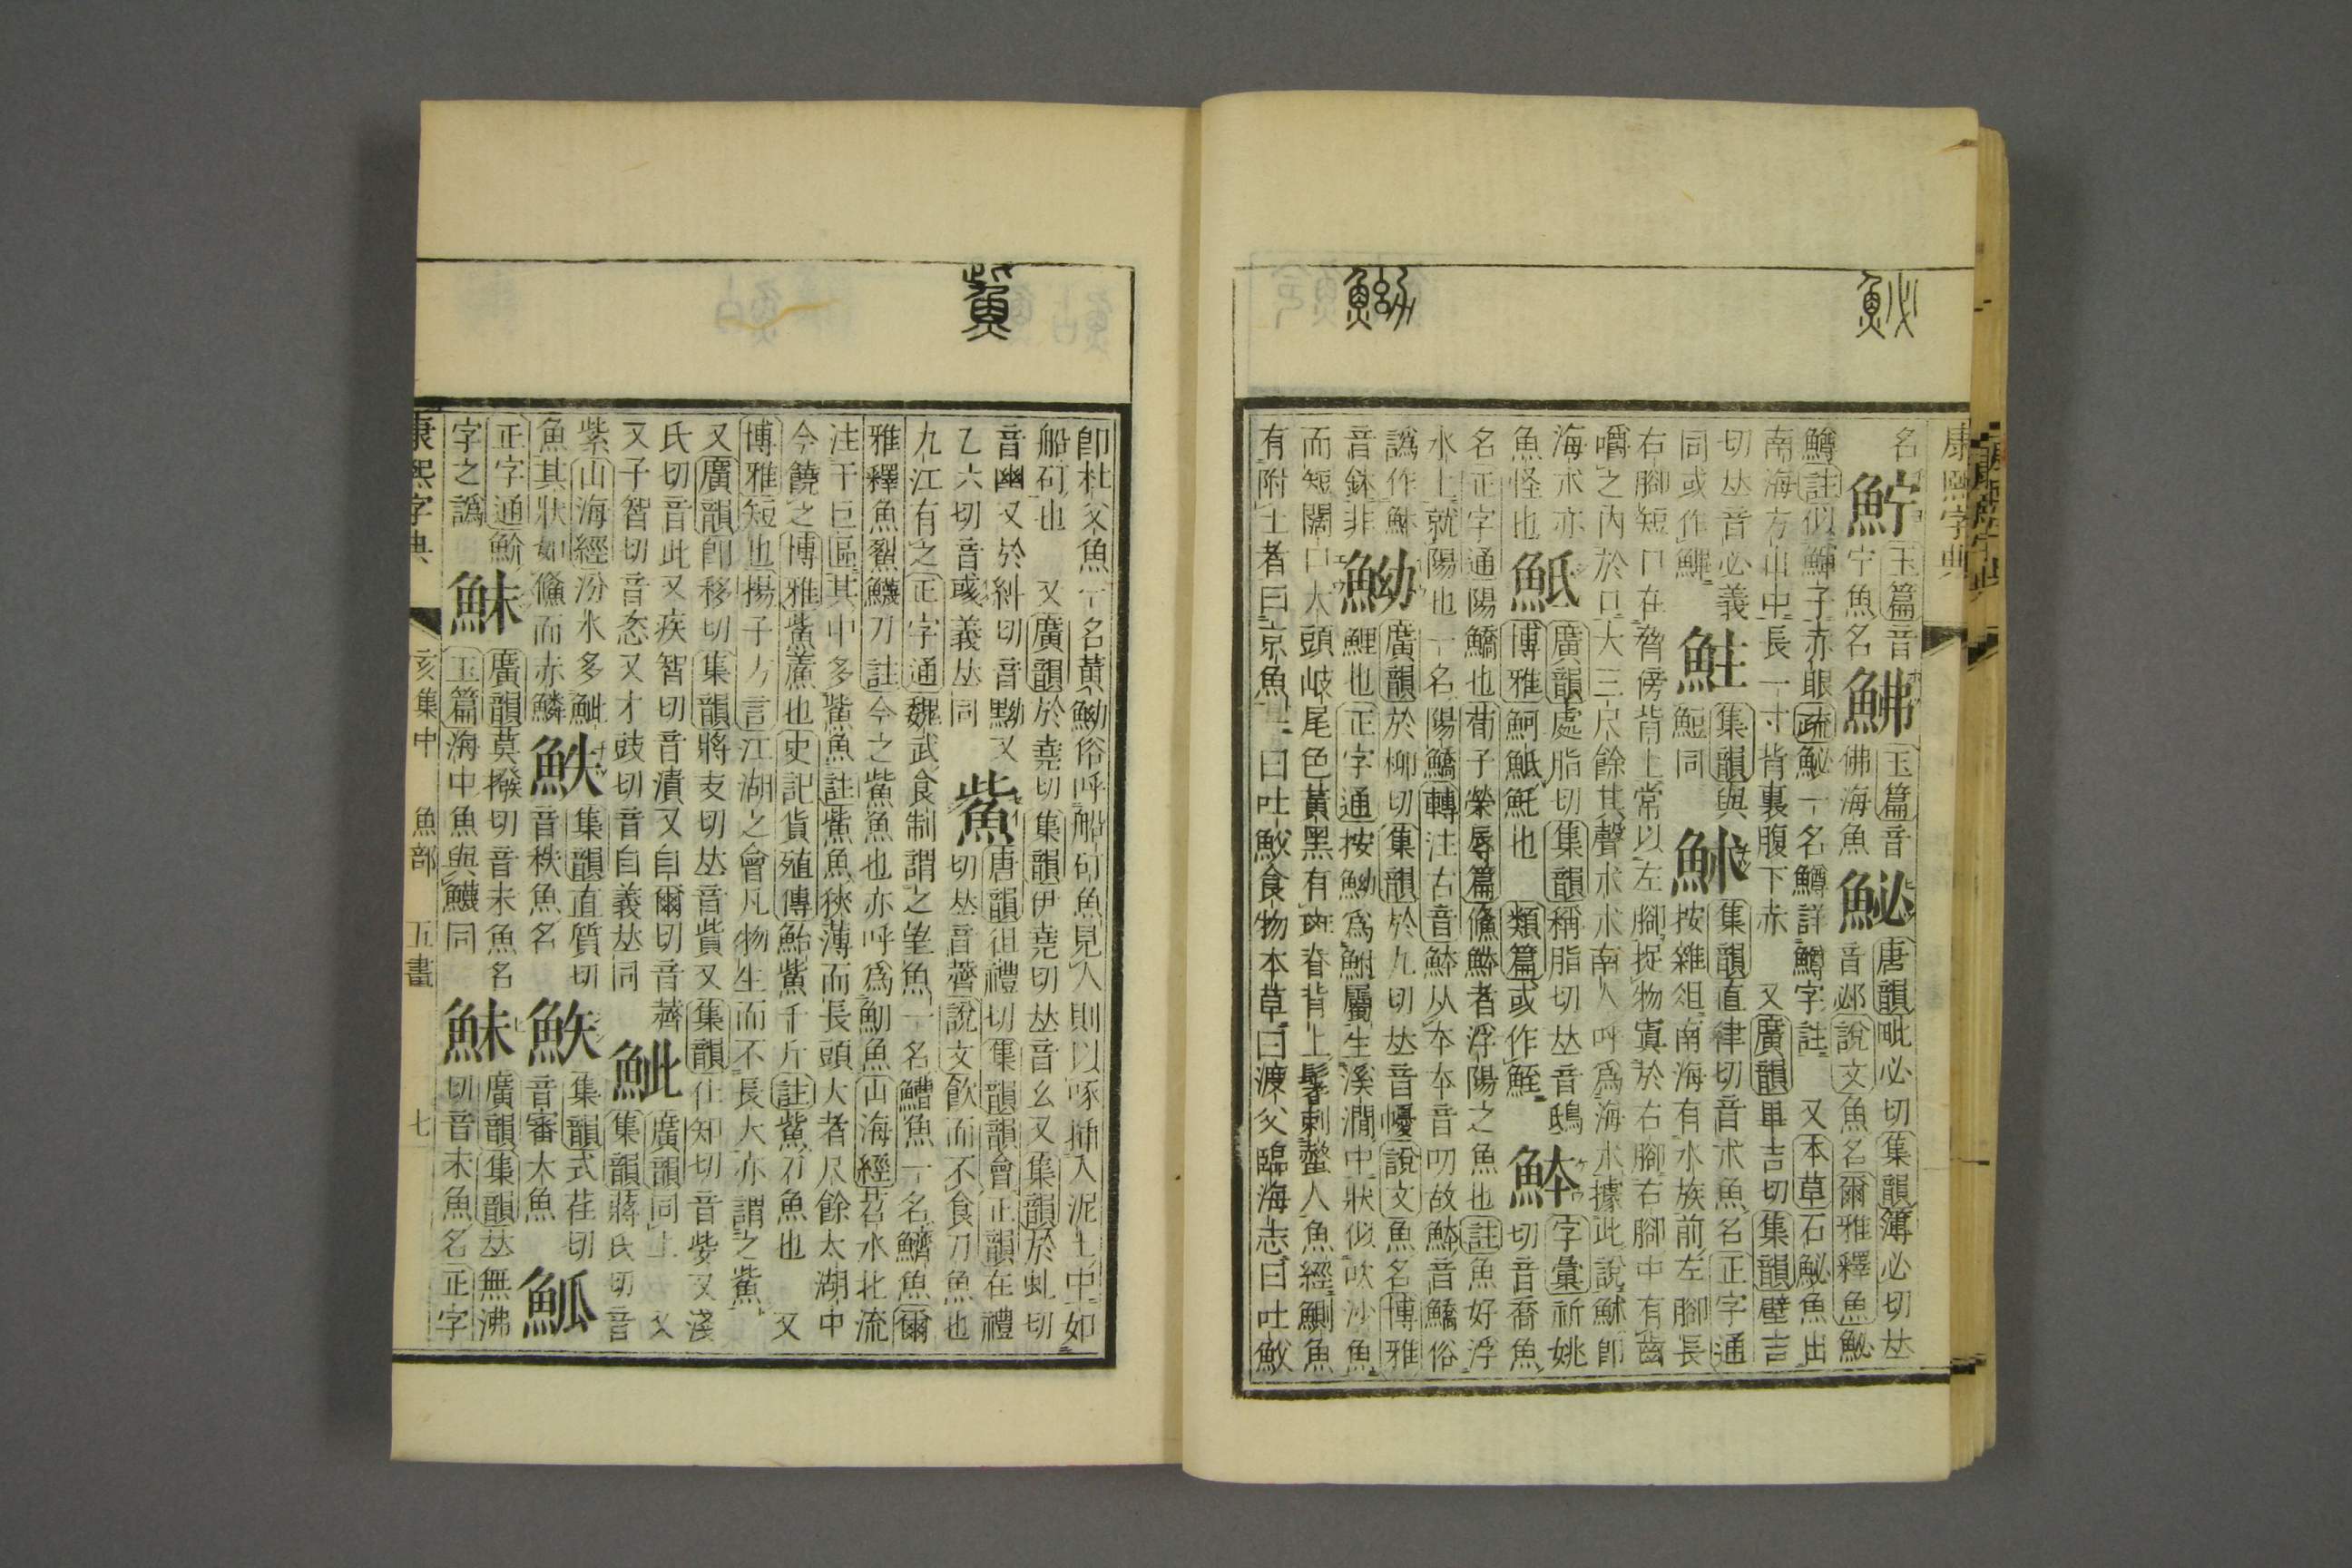 康熙字典
名 玉篇音 鮄 玉篇音 鮅 唐韻毗必切集韻簿必切𠀤
宁魚名 佛海魚 音邲說文魚名爾雅釋魚鮅
鱒註似鯶子赤眼疏鮅一名鱒詳鱒字註 又本草石鮅魚出
南海方山中長一寸背裏腹下赤 又廣韻𤰞吉切集韻壁吉
切𠀤音必義 集韻與 集韻直律切音朮魚名正字通
同或作 同 按雜俎南海有水族前左腳長
右腳短口在脅傍背上常以左腳捉物寘於右腳右腳中有齒
嚼之內於口大三尺餘其聲朮朮南人呼爲海朮據此說 卽
海朮亦 廣韻處脂切集韻稱脂切𠀤音鴟 䱁 字彙祈姚
魚怪也 博雅魺 魠也 類篇或作 切音喬魚
名正字通陽鱎也荀子榮辱篇鯈䱁者浮陽之魚也註魚好浮
水上就陽也一名陽鱎轉注古音䱁从本本音叨故䱁音鱎俗
譌作 䱂 廣韻於柳切集韻於九切𠀤音懮說文魚名博雅
音鉢非 鯉也正字通按䱂爲鮒屬生溪澗中狀似吹沙魚
而短闊口大頭岐尾色黃黑有斑脊背上鬐刺螫人魚經鰂魚
有附土者曰京魚一曰吐鮫食物本草曰渡父臨海志曰吐鮫
卽杜父魚一名黃䱂俗呼船矴魚見人則以啄揷入泥土中如
船矴也 又廣韻於堯切集韻伊堯切𠀤音幺又集韻於虬切
音幽又於糾切音黝又 鮆 唐韻徂禮切集韻韻會正韻在禮
乙六切音彧義𠀤同 切𠀤音薺說文飮而不食刀魚也
九江有之正字通魏武食制謂之望魚一名鰽魚一名鱭魚爾
雅釋魚鮤鱴刀註今之鮆魚也亦呼爲魛魚山海經苕水北流
注于巨區其中多鮆魚註鮆魚狹薄而長頭大者尺餘太湖中
今饒之博雅鮆 也史記貨殖傳鮐鮆千斤註鮆刀魚也 又
博雅短也揚子方言江湖之會凡物生而不長大亦謂之鮆
又廣韻卽移切集韻將支切𠀤音貲又集韻仕知切音 又淺
氏切音此又疾智切音漬又自爾切音薺 廣韻同上 又
又子智切音恣又才豉切音自義𠀤同 集韻蔣氏切音
紫山海經汾水多 集韻直質切 集韻式荏切
魚其狀如鯈而赤鱗 音秩魚名 音審大魚
正字通魪 廣韻莫撥切音末魚名 鮇 廣韻集韻𠀤無沸
字之譌 玉篇海中魚與鱴同 切音未魚名正字
康熙字典 亥集中 魚部 五畫 七